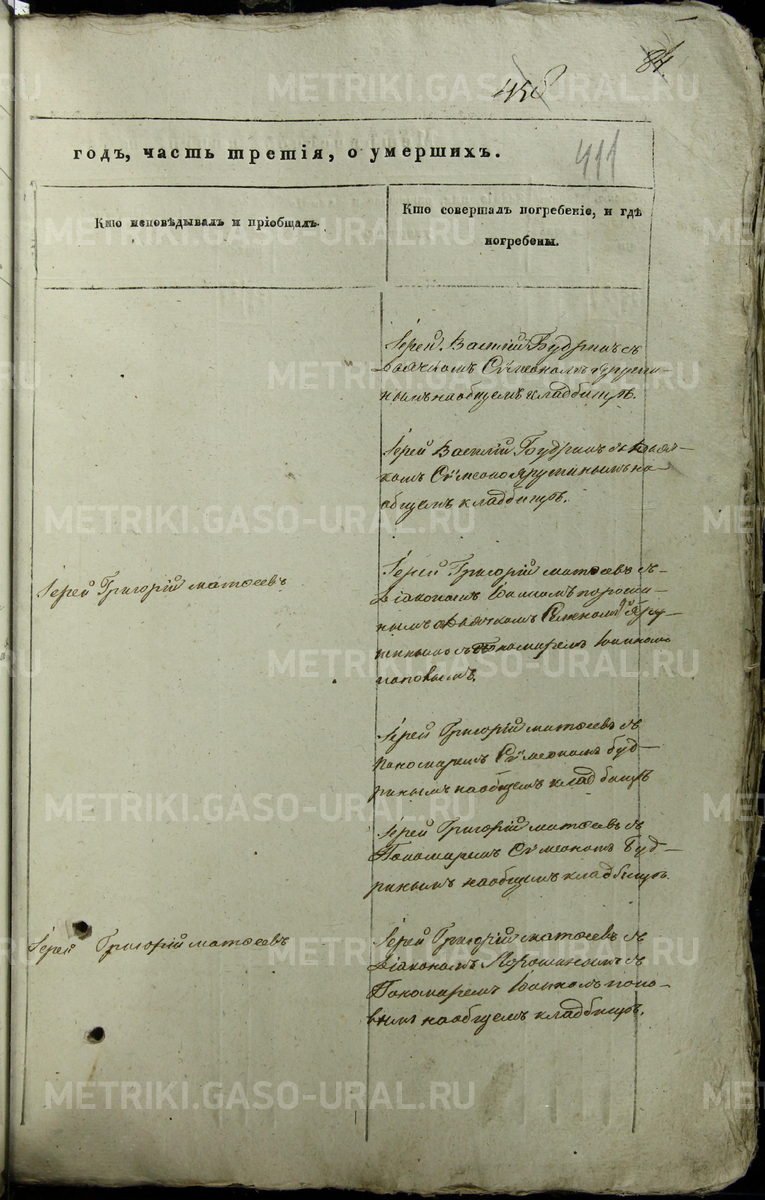 458
84.
411
годъ, часть третія, о умершихъ.
Кто исповѣдывалъ и пріобщалъ.
Кто совершалъ погребеніе, и гдѣ
погребены.
Іерей Василій Будринъ съ
дьячкомъ Сѵмеономъ Яруши-
нымъ на общемъ кладбищѣ.
Іерей Василій Будринъ съ дьяч-
комъ Сѵмеоно Ярушинымъ на
общемъ кладбищѣ.
Іерей Григорій Матѳеевъ
Іерей Григорій Матѳеевъ съ
діакономъ Іоанномъ Пороши-
нымъ дьячкомъ Сѵмеономъ Яру-
шинымъ съ Пономаремъ Іоанномъ
Поповымъ.
Іерей Григорій Матѳеевъ съ
Пономаремъ Сѵмеономъ Буд-
ринымъ на общемъ кладбищѣ
Іерей Григорій Матѳеевъ съ
Пономаремъ Сѵмеономъ Буд-
ринымъ на общемъ кладбищѣ.
Іерей Григорій Матѳеевъ
Іерей Григорій Матѳеевъ съ
Діакономъ Порошинымъ съ
Пономаремъ Іоанномъ Попо-
вымъ на общемъ кладбищѣ.
METRIKI.GASO-URAL.RU